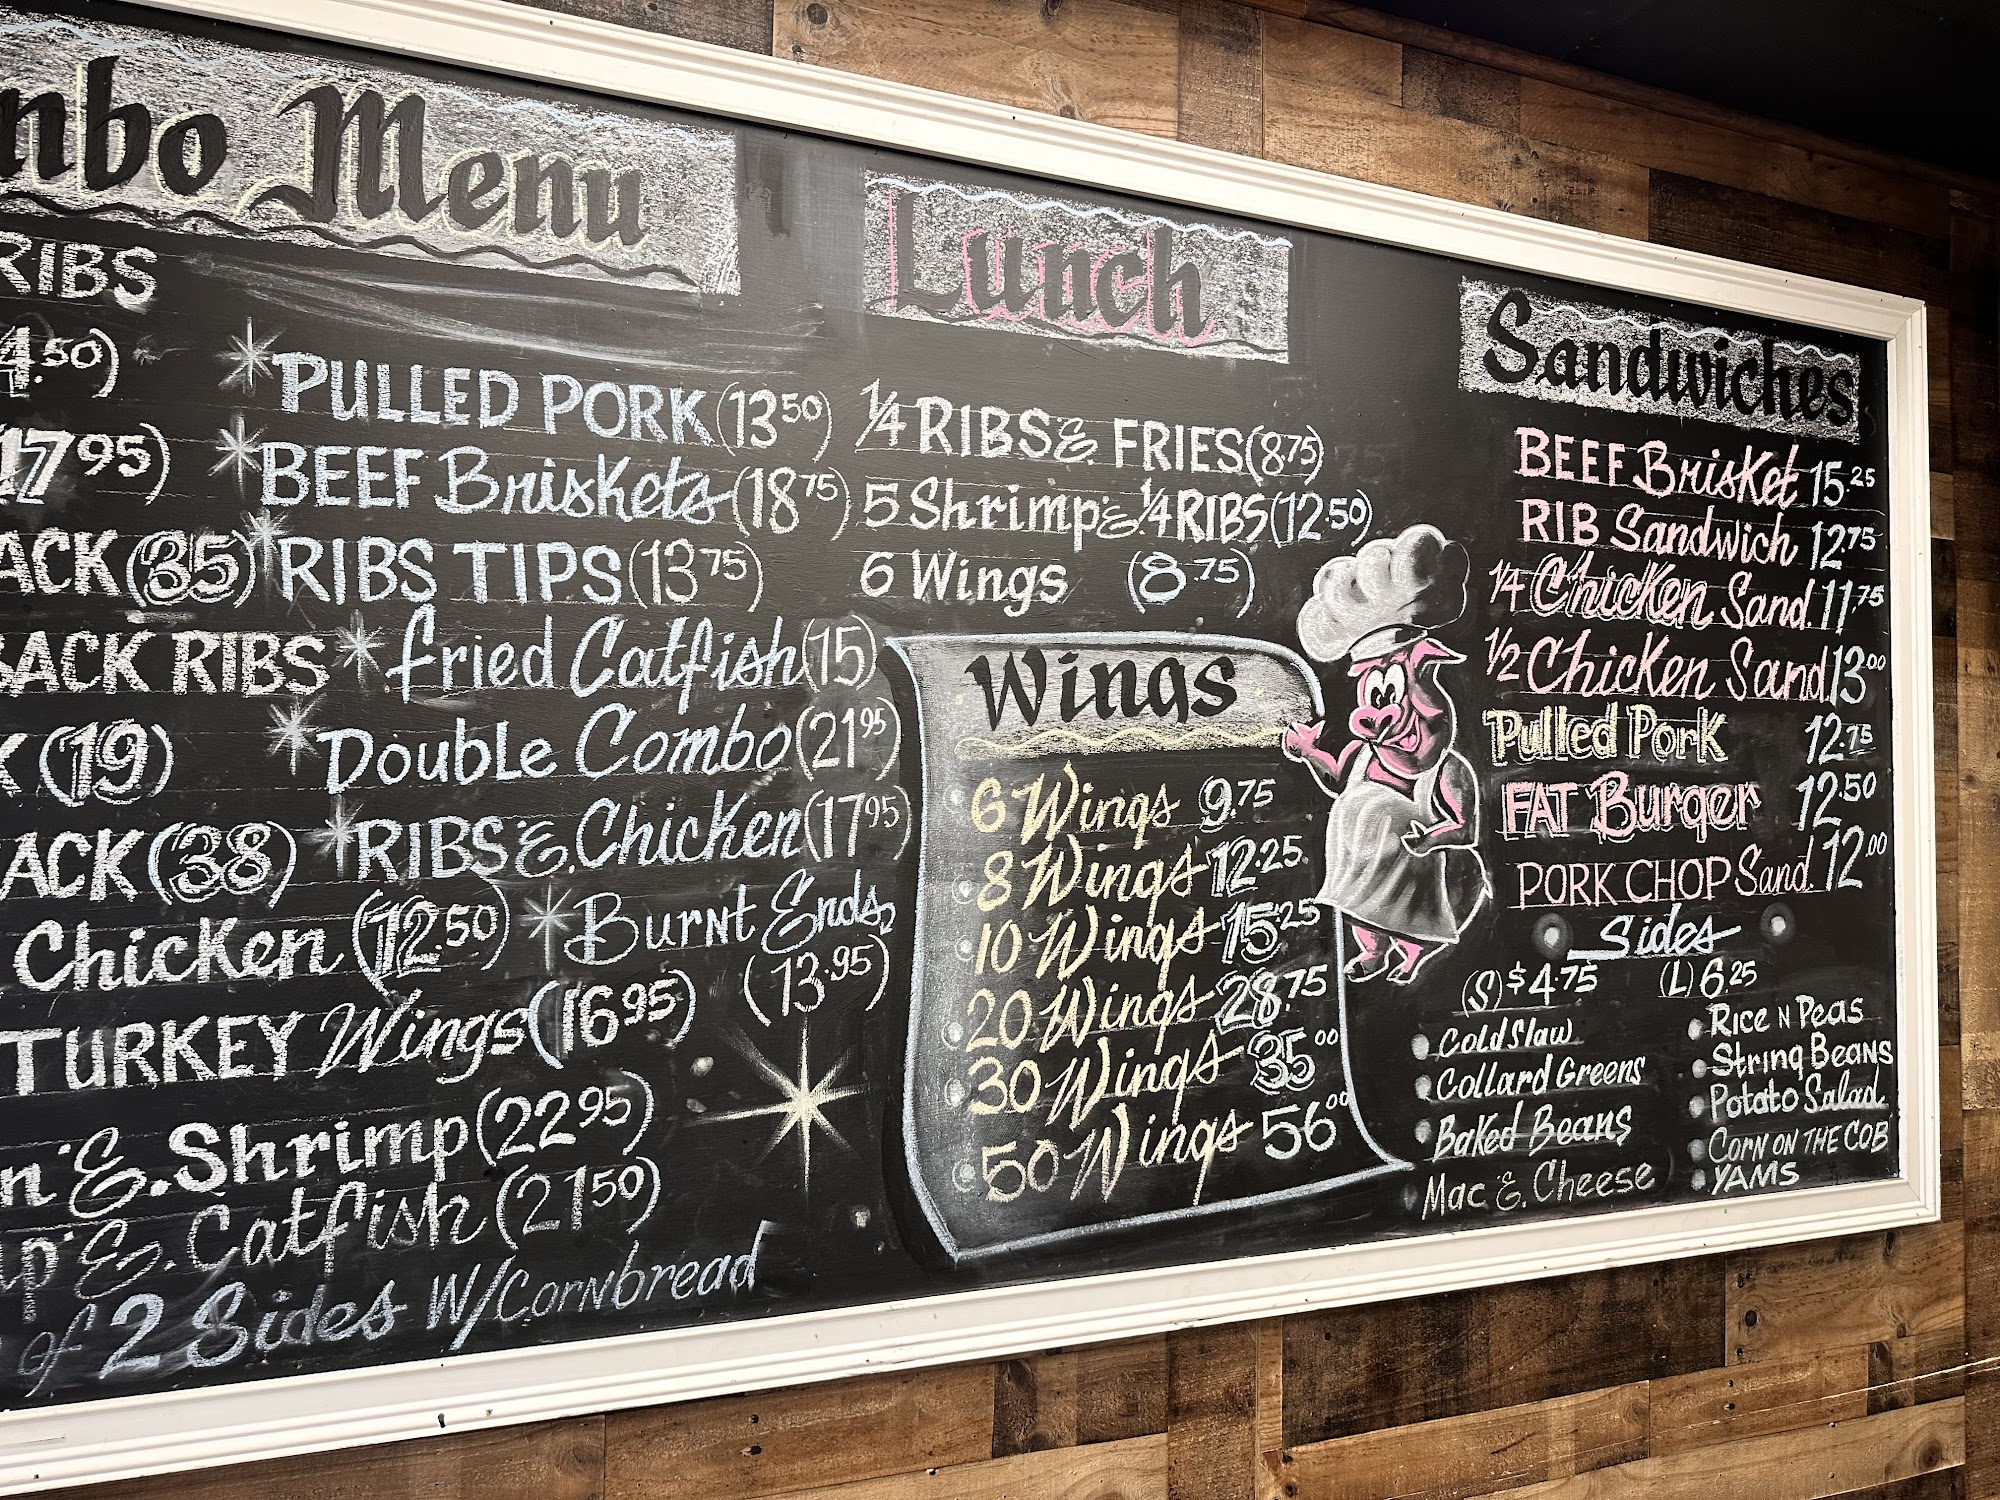 Menu
RIBS
PULLED PORK (13.50)
17.95)
BEEF Briskets (18.75)
(35)
RIBS TIPS (13.75)
RIBS
fried Catfish (15)
(19)
Double Combo (21.95)
(38)
RIBS &. Chicken (17.95)
Chicken (12.50)
Burnt Ends
(13.95)
TURKEY Wings (16.95)
&. Shrimp (22.95)
&. Catfish (21.50)
of 2 Sides W/Cornbread
Lunch
1/4 RIBS &. FRIES (8.75)
5 Shrimp &. 1/4 RIBS (12.50)
6 Wings (8.75)
Wings
6 Wings 9.75
8 Wings 12.25
10 Wings 15.25
20 Wings 28.75
30 Wings 35.00
50 Wings 56.00
Sandwiches
BEEF Brisket 15.25
RIB Sandwich 12.75
1/4 Chicken Sand. 11.75
1/2 Chicken Sand. 13.00
Pulled Pork 12.75
FAT Burger 12.50
PORK CHOP Sand. 12.00
Sides
(S) $4.75 (L) 6.25
Cold Slaw
Collard Greens
Baked Beans
Mac &. Cheese
Rice N Peas
String Beans
Potato Salad
Corn on the Cob
YAMS